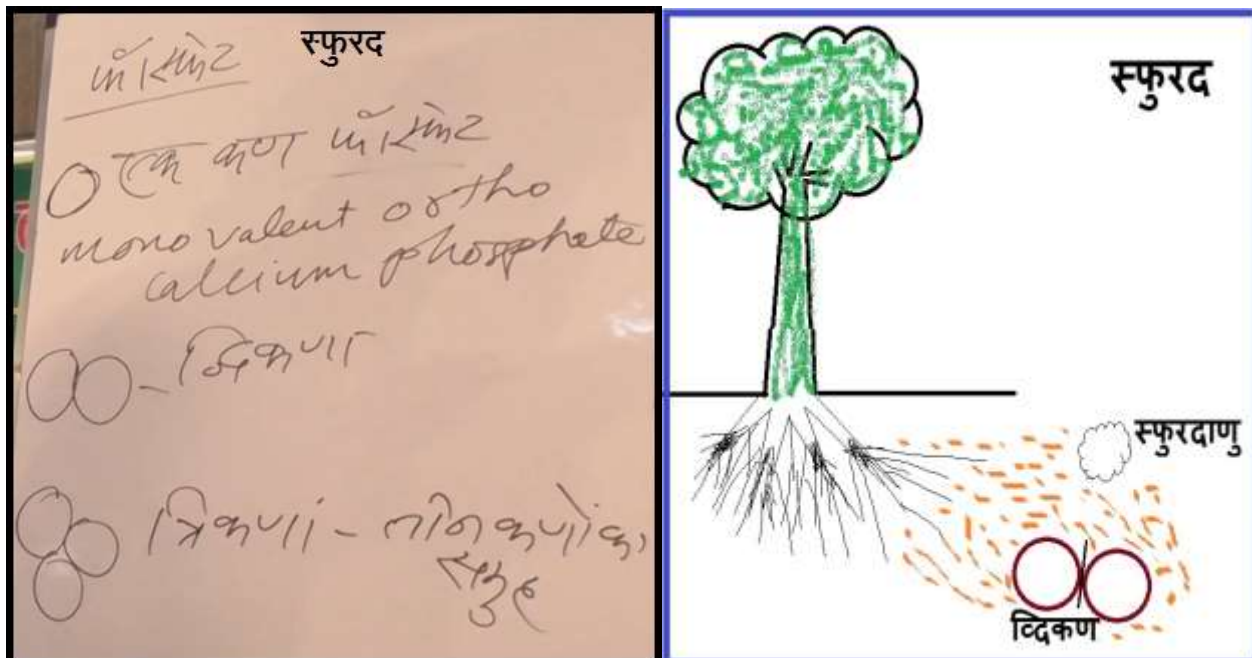 स्फुरद
फॉस्फेट
एक कण फॉस्फेट
monovalent ortho
calcium phosphate
द्विकण
त्रिकण - तीन कणोंका
समुह
स्फुरद
स्फुरदाणु
व्दिकण